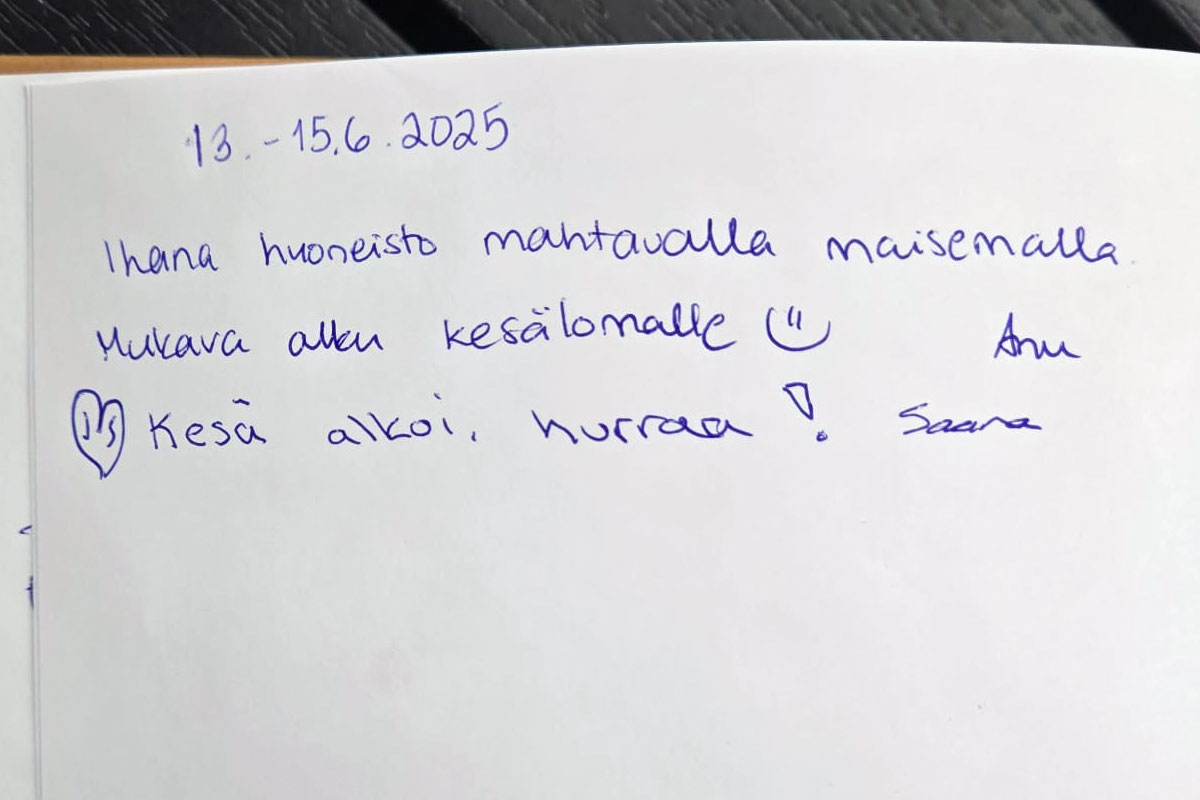 13.-15.6.2025
Ihana huoneisto mahtavalla maisemalla.
Mukava alku kesälomalle Anu
Kesä alkoi, hurraa! Saana